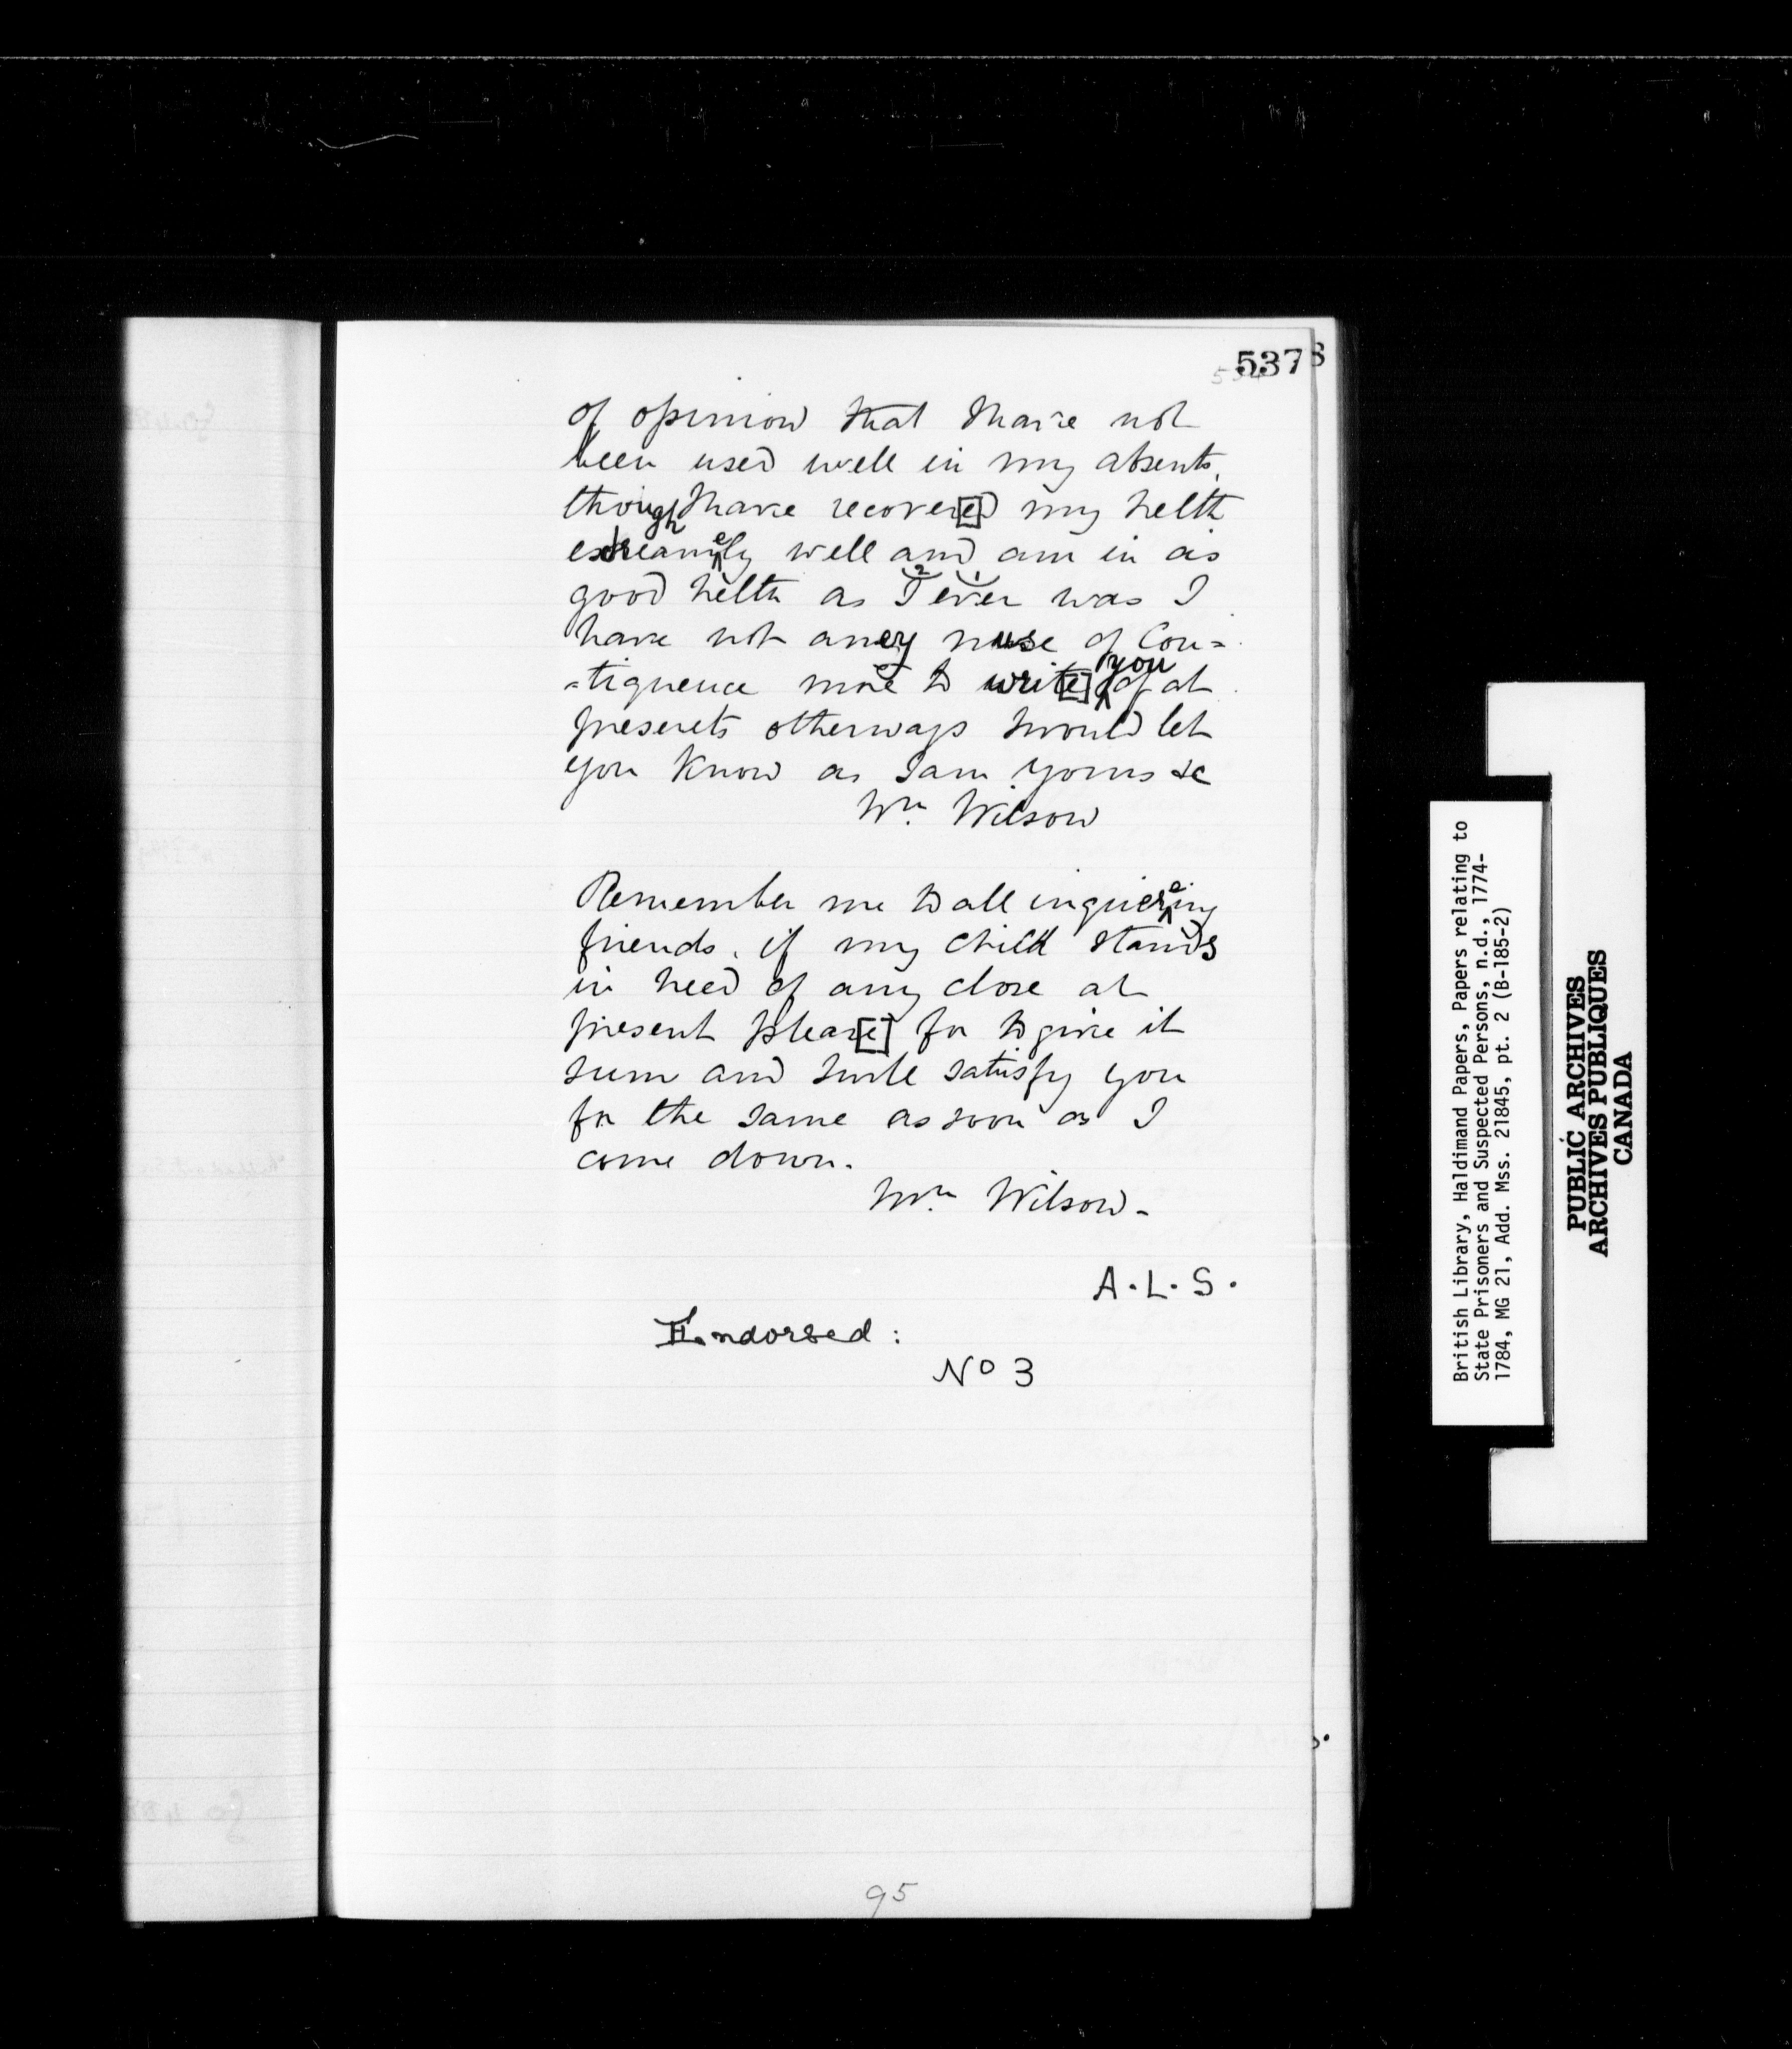 537
of opinion that I have not
been used well in my absents,
though I have recover[e]d my helth
extreamely well and am in as
good helth as I ever was I
have not aney nuse of Con=
=tiquence more to writ[e] you of at
presents otherways I would let
you know as I am yours &c
Wm. Wilson
Remember me to all inquiereing
friends. if my child stands
in need of any close at
present pleas[e] for to give it
sum and I will satisfy you
for the same as soon as I
come down.
Wm. Wilson -
A.L.S.
Endorsed:
No 3
95
British Library, Haldimand Papers, Papers relating to
State Prisoners and Suspected Persons, n.d., 1774-
1784, MG 21, Add. Mss. 21845, pt. 2 (B-185-2)
PUBLIC ARCHIVES
ARCHIVES PUBLIQUES
CANADA